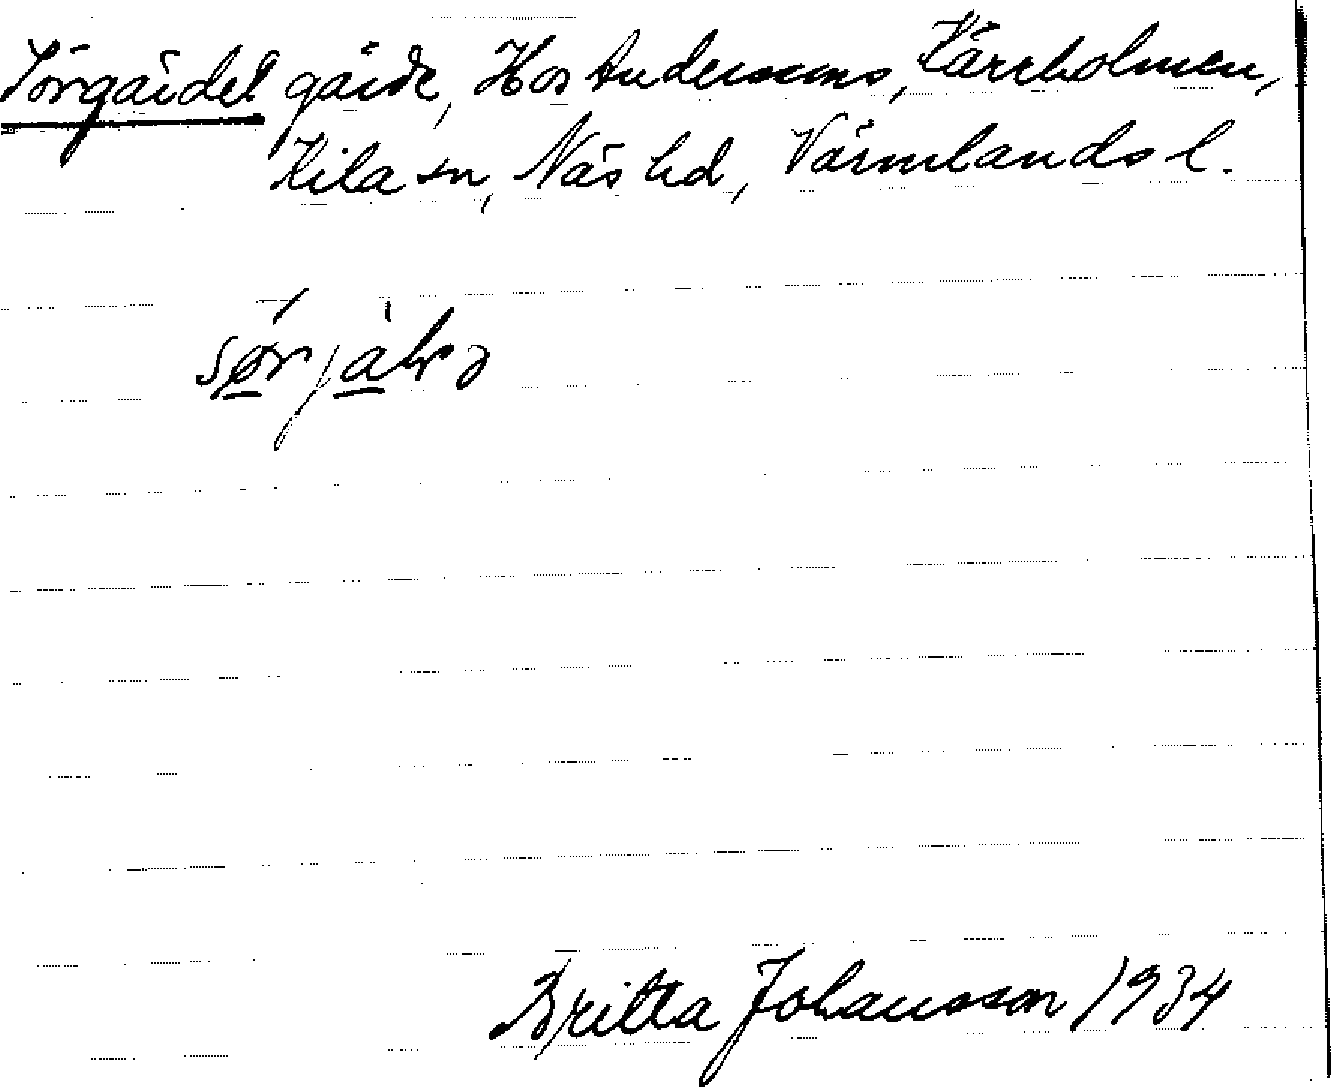 Sörgärdet gärde, Hos Anderssons, Kärrholmen,
Kila sn, Näs hd, Värmlands l.
Britta Johansson 1934